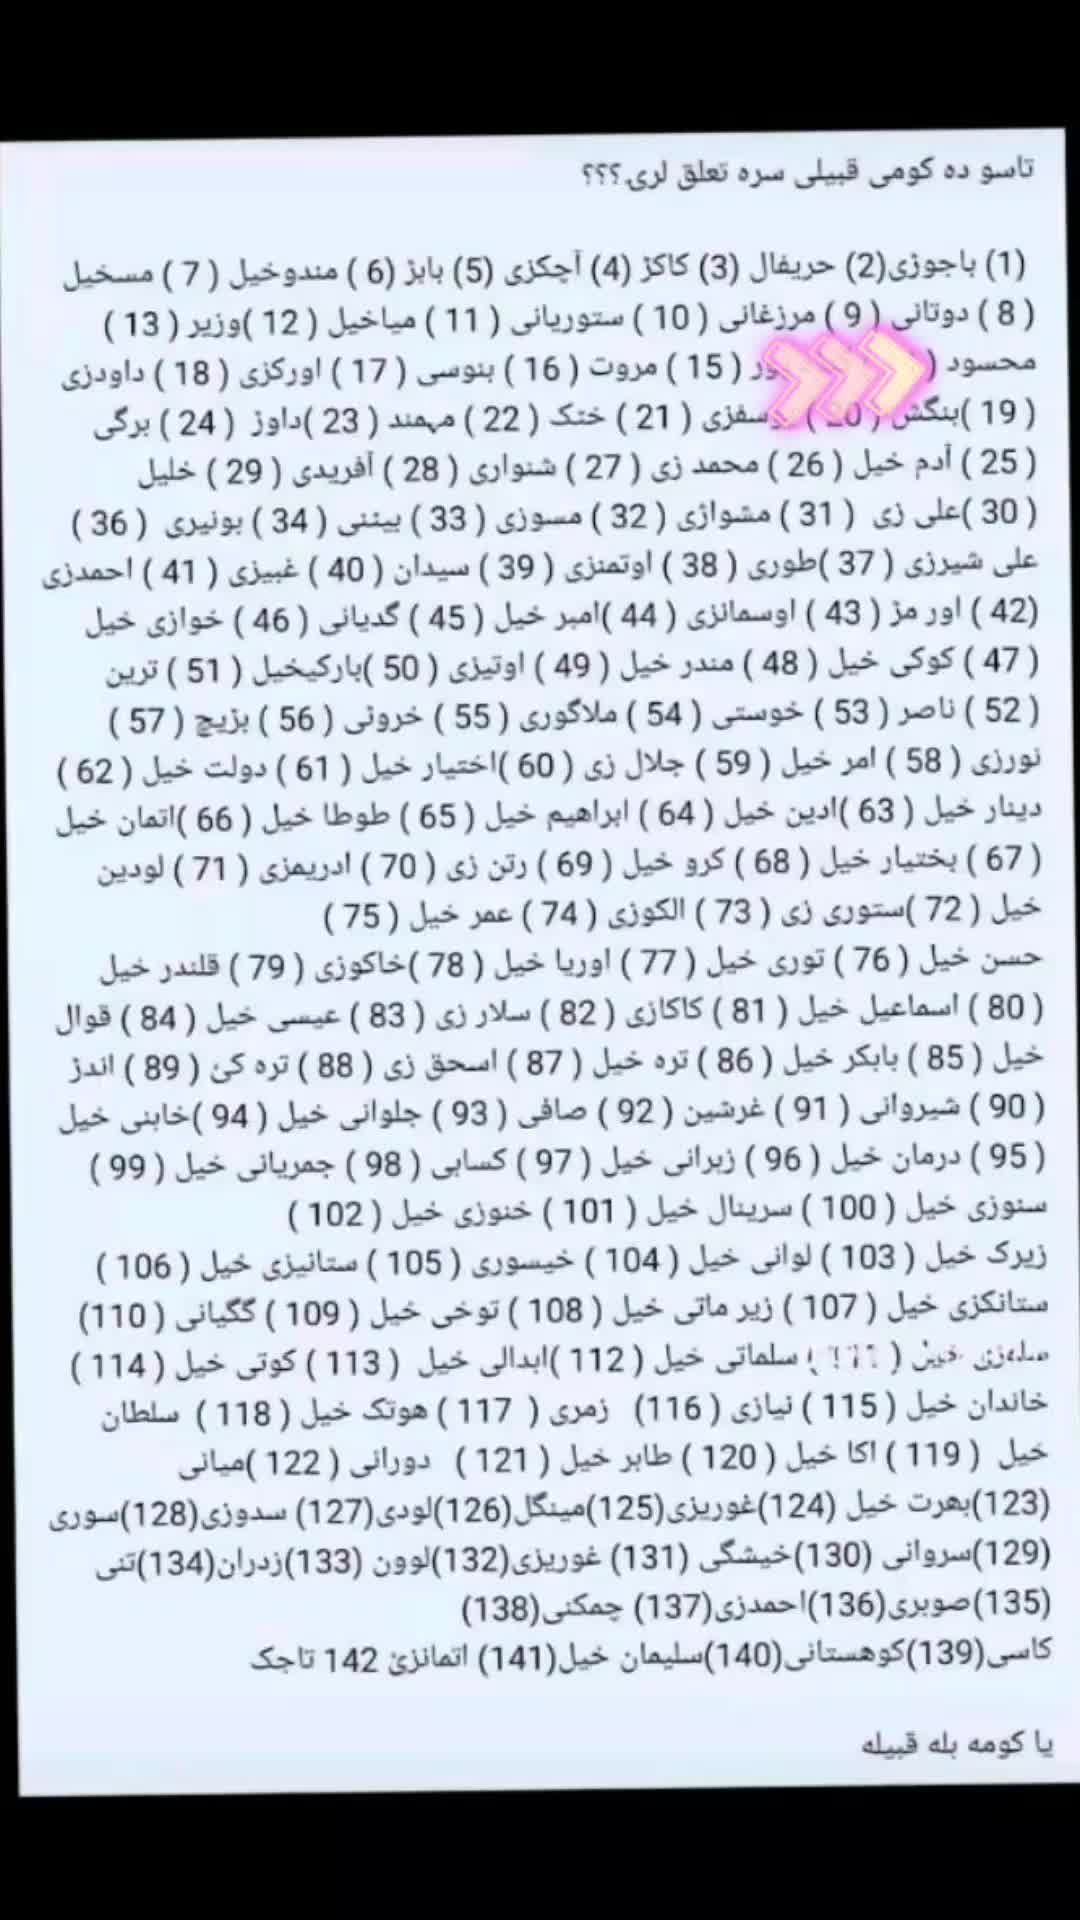 تاسو ده کومی قبیلی سره تعلق لری؟؟؟
(1) باجوزی(2) حریفال (3) کاکڑ (4) آچکزی (5) بابڑ (6 ) مندوخیل ( 7 ) مسخیل
( 8 ) دوتانی ( 9 ) مرزغانی ( 10 ) ستوریانی ( 11 ) میاخیل ( 12 )وزیر ( 13 )
محسود ( 15 ) مروت ( 16 ) بنوسی ( 17 ) اورکزی ( 18 ) داودزی
( 19 )بنگش ( 20 ) ( 21 ) خټک ( 22 ) مہمند ( 23 )داوڑ ( 24 ) برگی
( 25 ) آدم خیل ( 26 ) محمد زی ( 27 ) شنواری ( 28 ) آفریدی ( 29 ) خلیل
( 30 )علی زی ( 31 ) مشواڑی ( 32 ) مسوزی ( 33 ) بیٹنی ( 34 ) بونیری ( 36 )
علی شیرزی ( 37 )طوری ( 38 ) اوتمنزی ( 39 ) سیدان ( 40 ) غبیزی ( 41 ) احمدزی
(42 ) اور مڑ ( 43 ) اوسمانزی ( 44 )امبر خیل ( 45 ) گدیانی ( 46 ) خوازی خیل
( 47 ) کوکی خیل ( 48 ) مندر خیل ( 49 ) اوتیزی ( 50 )بارکیخیل ( 51 ) ترین
( 52 ) ناصر ( 53 ) خوستی ( 54 ) ملاگوری ( 55 ) خروٹی ( 56 ) بڑیچ ( 57 )
نورزی ( 58 ) امر خیل ( 59 ) جلال زی ( 60 )اختیار خیل ( 61 ) دولت خیل ( 62 )
دینار خیل ( 63 )ادین خیل ( 64 ) ابراهیم خیل ( 65 ) طوطا خیل ( 66 )اتمان خیل
( 67 ) بختیار خیل ( 68 ) کرو خیل ( 69 ) رتن زی ( 70 ) ادریمزی ( 71 ) لودین
خیل ( 72 )ستوری زی ( 73 ) الکوزی ( 74 ) عمر خیل ( 75 )
حسن خیل ( 76 ) توری خیل ( 77 ) اوریا خیل ( 78 )خاکوزی ( 79 ) قلندر خیل
( 80 ) اسماعیل خیل ( 81 ) کاکازی ( 82 ) سلار زی ( 83 ) عیسی خیل ( 84 ) قوال
خیل ( 85 ) بابکر خیل ( 86 ) تره خیل ( 87 ) اسحق زی ( 88 ) تره کئ ( 89 ) اندڑ
( 90 ) شیروانی ( 91 ) غرشین ( 92 ) صافی ( 93 ) جلوانی خیل ( 94 )خابنی خیل
( 95 ) درمان خیل ( 96 ) زبرانی خیل ( 97 ) کسابی ( 98 ) جمریانی خیل ( 99 )
سنوزی خیل ( 100 ) سرینال خیل ( 101 ) خنوزی خیل ( 102 )
زیرک خیل ( 103 ) لوانی خیل ( 104 ) خیسوری ( 105 ) ستانیزی خیل ( 106 )
ستانکزی خیل ( 107 ) زیر ماتی خیل ( 108 ) توخی خیل ( 109 ) گگیانی ( 110)
خیل ( 111 ) سلماتی خیل ( 112 )ابدالی خیل ( 113 ) کوتی خیل ( 114 )
خاندان خیل ( 115 ) نیازی ( 116) زمری ( 117 ) هوتک خیل ( 118 ) سلطان
خیل ( 119 ) اکا خیل ( 120 ) طاہر خیل ( 121 ) دورانی ( 122 )میانی
(123)بهرت خیل (124)غوریزی(125)مینگل(126)لودی(127) سدوزی(128)سوری
(129)سروانی (130)خیشگی (131) غوریزی(132)لوون (133)زدران(134)تنی
(135)صوبری(136)احمدزی(137) چمکنی(138)
کاسی(139)کوهستانی(140)سلیمان خیل(141) اتمانزئ 142 تاجک
یا کومه بله قبیله